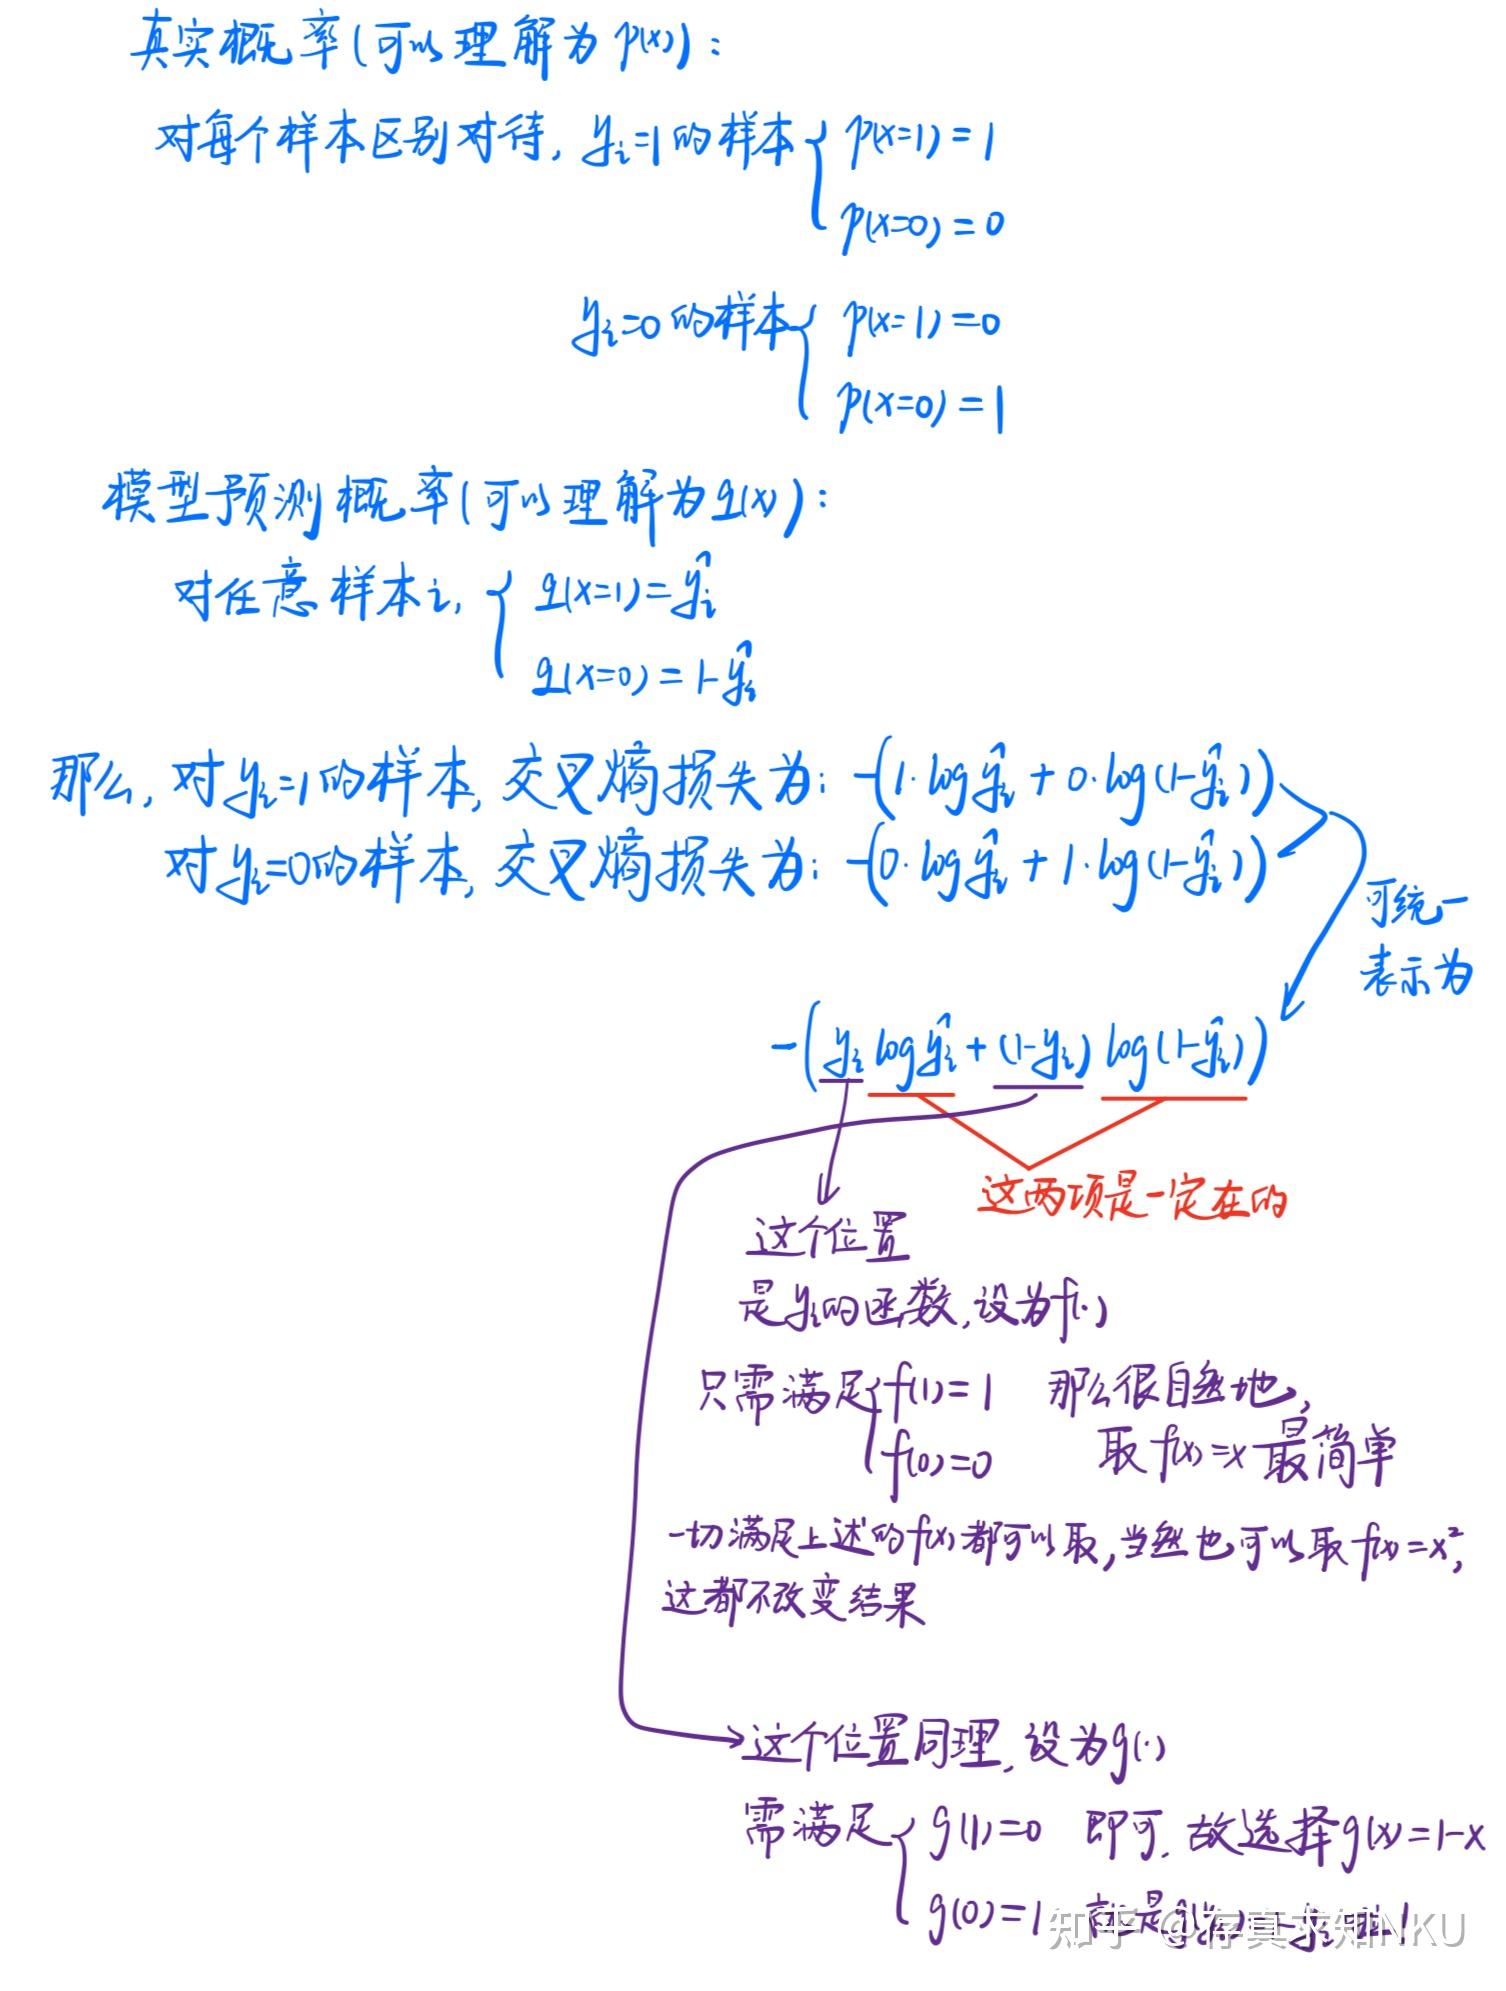 真实概率(可以理解为p(x)):
对每个样本区别对待, yᵢ=1的样本 { p(x=1)=1
p(x=0)=0
yᵢ=0的样本 { p(x=1)=0
p(x=0)=1
模型预测概率(可以理解为q(x)):
对任意样本i, { q(x=1)=ŷᵢ
q(x=0)=1-ŷᵢ
那么, 对yᵢ=1的样本, 交叉熵损失为: -(1·logŷᵢ+0·log(1-ŷᵢ))
对yᵢ=0的样本, 交叉熵损失为: -(0·logŷᵢ+1·log(1-ŷᵢ))
可统一
表示为
-(yᵢ logŷᵢ+(1-yᵢ) log(1-ŷᵢ))
这两项是一定在的
这个位置
是yᵢ的函数, 设为f(·)
只需满足 { f(1)=1 那么很自然地,
f(0)=0 取f(x)=x最简单
一切满足上述的f(x)都可以取, 当然也可以取f(x)=x²,
这都不改变结果
这个位置同理, 设为g(·)
需满足 { g(1)=0 即可, 故选择g(x)=1-x
g(0)=1 就是
知乎 @存真求知NKU